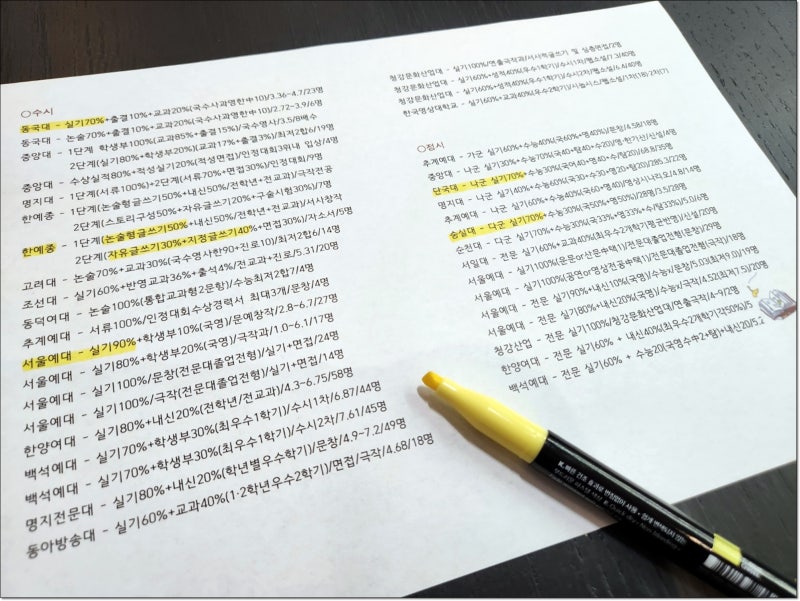 ○수시
동국대 - 실기70%+출결10%+교과20%(국수사과영한中10)/3.36-4.7/23명
동국대 - 논술70%+출결10%+교과20%(국수사과영한中10)/2.72-3.9/6명
중앙대 - 1단계 학생부100%(교과85%+출결15%)/국수영사/3.5/8배수
2단계(실기80%+학생부20%)(교과17%+출결3%)/최저2합6/19명
중앙대 - 수상실적80%+적성실기20%(적성면접)/인정대회3위내 입상/4명
명지대 - 1단계(서류100%)+2단계(서류70%+면접30%)/인정대회/9명
한예종 - 1단계(논술형글쓰기50%+내신50%/전학년+전교과)/극작전공
2단계(스토리구성50%+자유글쓰기20%+구술시험30%)/7명
한예종 - 1단계(논술형글쓰기50%+내신50%/전학년+전교과)/서사창작
2단계(자유글쓰기30%+지정글쓰기40%+면접30%)/자소서/5명
고려대 - 논술70%+교과30%(국수영사한90+진로10)/최저2합6/14명
조선대 - 실기60%+반영교과36%+출석4%/전교과+진로/5.31/20명
동덕여대 - 논술100%(통합교과형2문항)/수능최저2합7/4명
추계예대 - 서류100%/인정대회수상경력서 최대3개/문창/4명
서울예대 - 실기90%+학생부10%(국영)/문예창작/2.8-6.7/27명
서울예대 - 실기80%+학생부20%(국영)/극작과/1.0-6.1/17명
서울예대 - 실기100%/문창(전문대졸업전형)/실기+면접/24명
서울예대 - 실기100%/극작(전문대졸업전형)/실기+면접/14명
한양여대 - 실기80%+내신20%(전학년/전교과)/4.3-6.75/58명
백석예대 - 실기70%+학생부30%(최우수1학기)/수시1차/6.87/44명
백석예대 - 실기70%+학생부30%(최우수1학기)/수시2차/7.61/45명
명지전문대 - 실기80%+내신20%(학년별우수학기)/문창/4.9-7.2/49명
동아방송대 - 실기60%+교과40%(1·2학년우수2학기)/면접/극작/4.68/18명
청강문화산업대 - 실기100%/연출극작과/서사적글쓰기 및 심층면접/2명
청강문화산업대 - 실기60%+성적40%(우수1학기)/수시1차/웹소설/7.3/40명
청강문화산업대 - 실기60%+성적40%(우수1학기)/수시2차/웹소설/6.4/40명
한국영상대학교 - 실기60%+교과40%(우수2학기)/시놉시스/웹소설/1차(18)·2차(7)
○정시
추계예대 - 가군 실기60%+수능40%(국60%+영40%)/문창/4.58/18명
중앙대 - 나군 실기70%+수능30%(국40+탐40+수20)/영·한가산/신설/4명
단국대 - 나군 실기70%+수능30%(국40+영40+수/탐20)/68.8/35명
명지대 - 나군 실기40%+수능60%(국30+수30+영20+탐20)/285.3/22명
추계예대 - 나군 실기60%+수능40%(국60+영40)/영상시나리오/4.8/14명
숭실대 - 다군 실기70%+수능30%(국50%+영50%)/28명/3.5/28명
순천대 - 다군 실기70%+수능30%(국33%+영33%+수/탐33%)/5.0/6명
서일대 - 전문 실기60%+교과40%(최우수2개학기평균반영)/신설/20명
서울예대 - 전문 실기100%(운문or산문中택1)/전문대졸업전형(문창)/29명
서울예대 - 전문 실기100%(공연or영상전공中택1)/전문대졸업전형(극작)/18명
서울예대 - 전문 실기90%+내신10%(국영)/수능x/문창/5.03(최저9.0)/19명
서울예대 - 전문 실기80%+내신20%(국영)/수능x/극작/4.52(최저7.5)/20명
청강산업 - 전문 실기100%/청강문화산업대/연출극작/4-9/2명
한양여대 - 전문 실기60% + 내신40%(최우수2개학기각50%)/5
백석예대 - 전문 실기60% + 수능20(국영수中2+탐)+내신20)/5.2